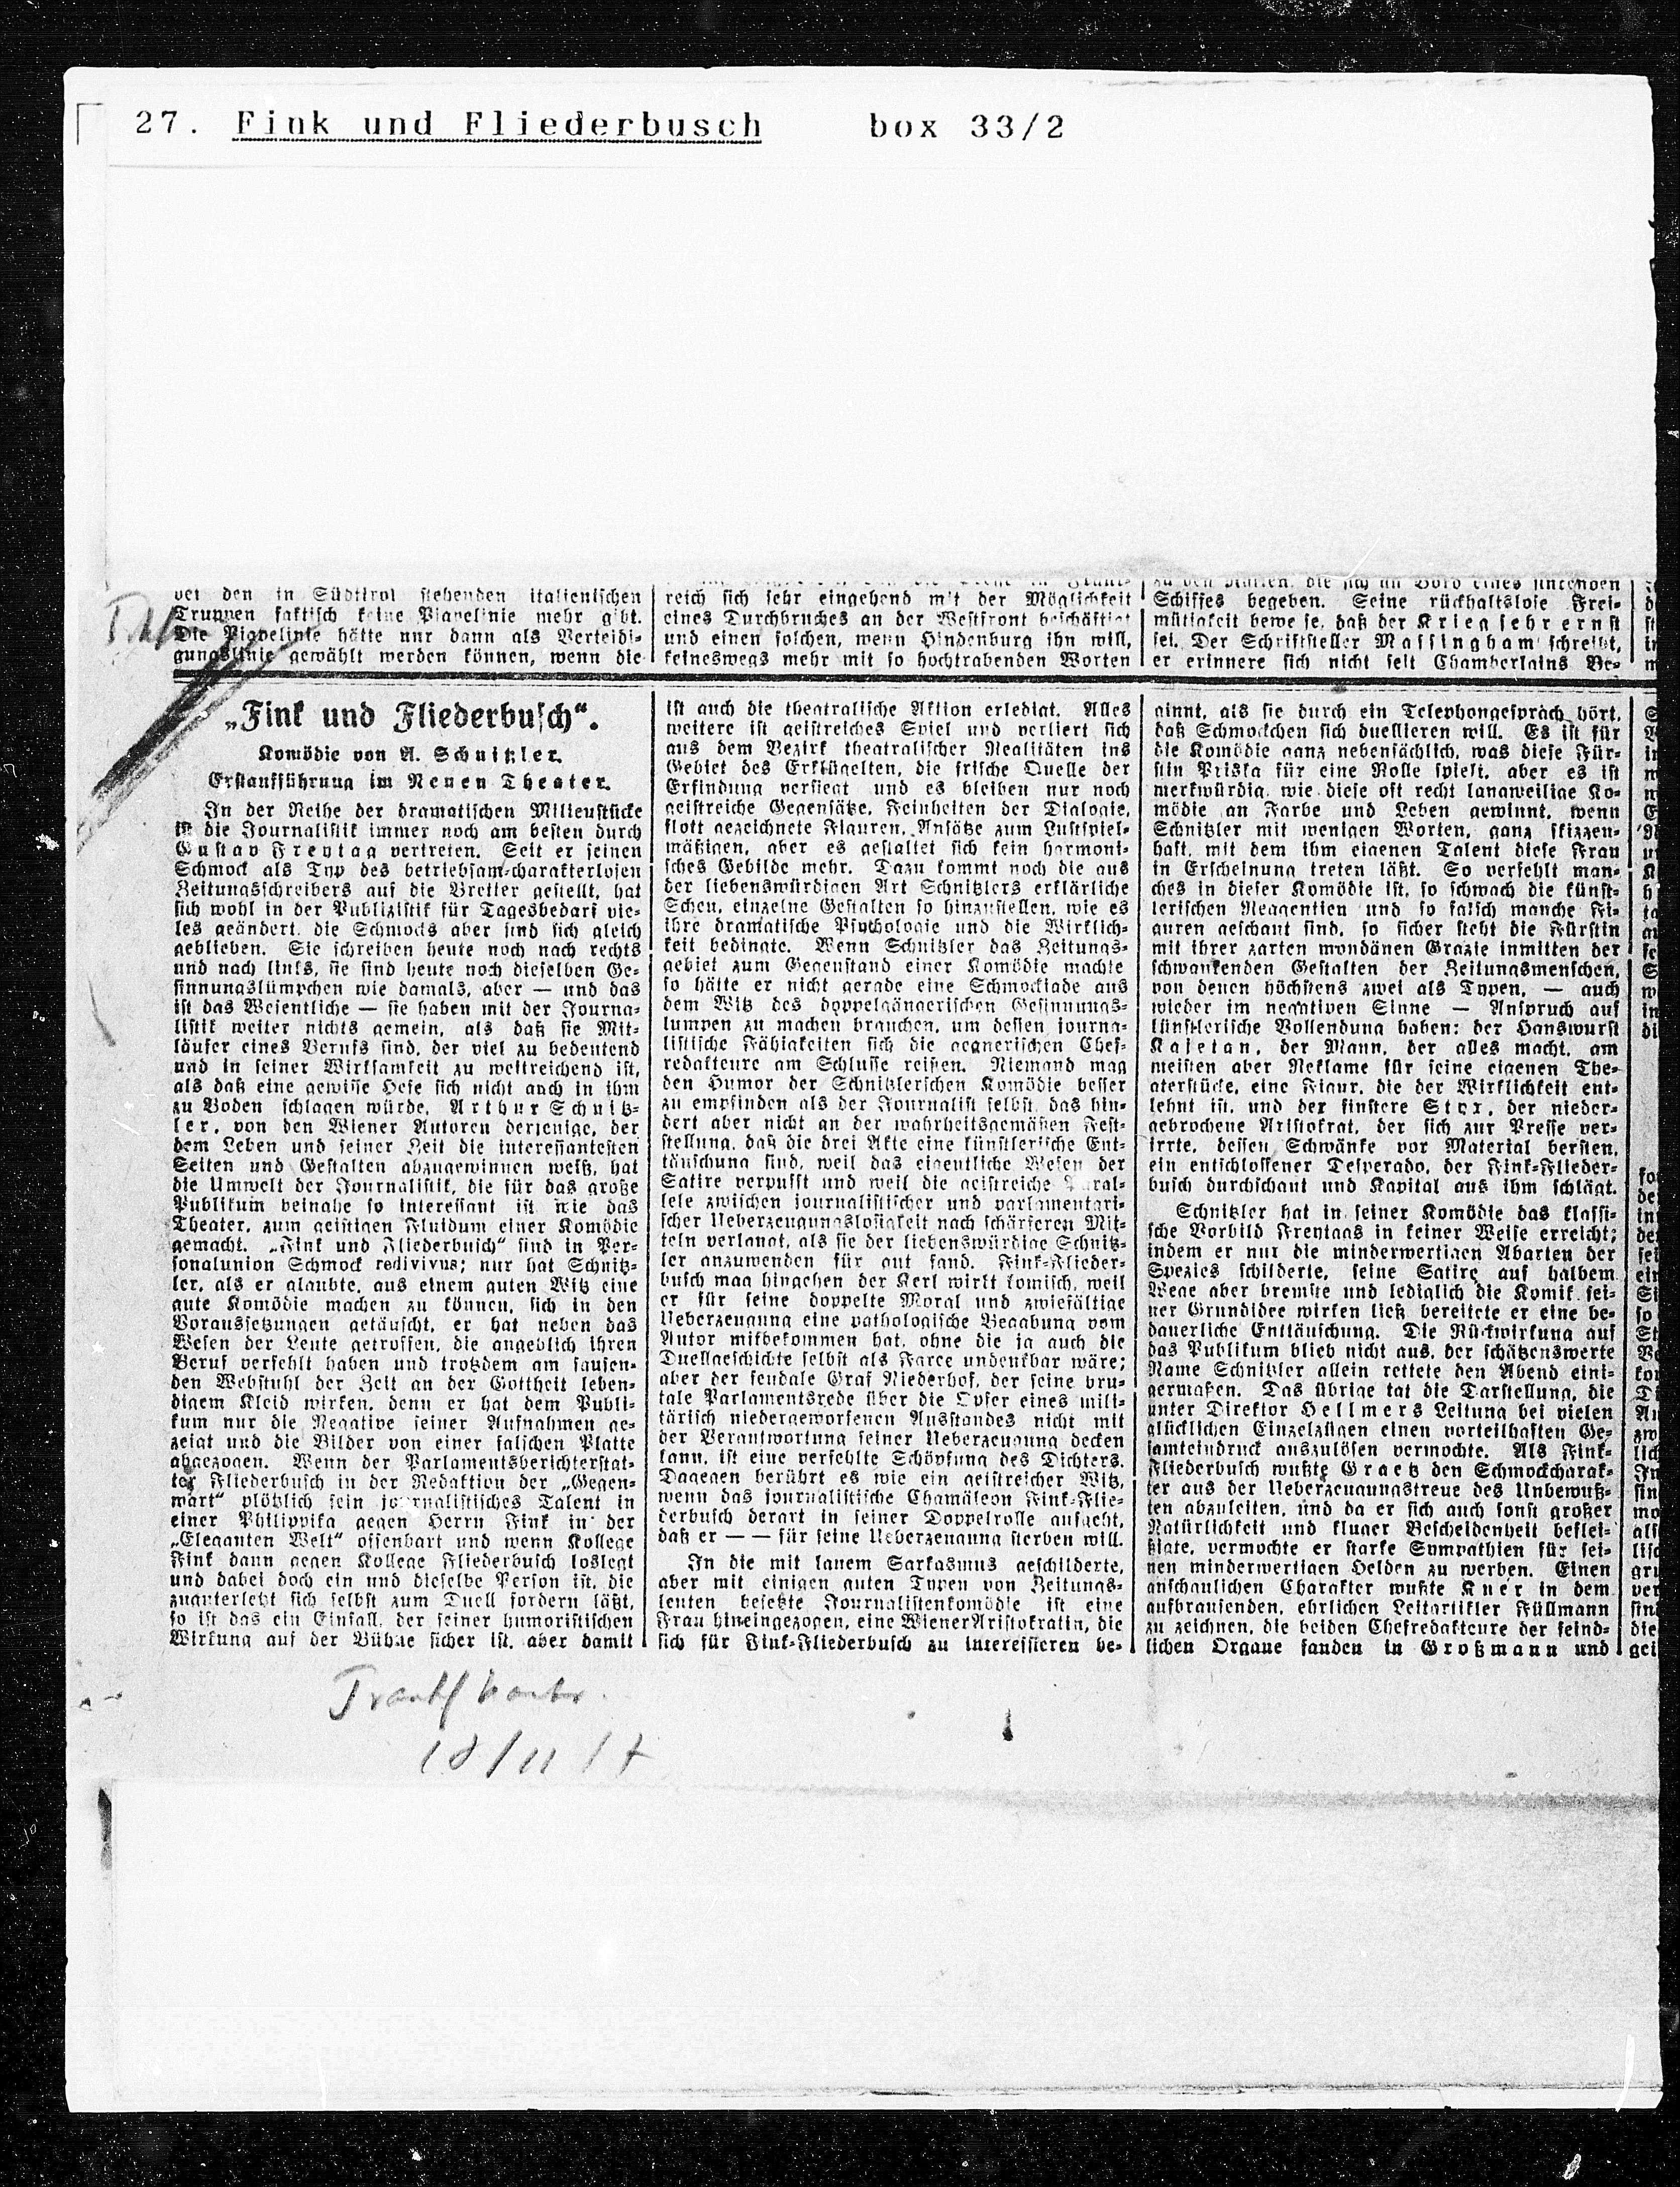 27. Fink und Fliederbusch box 33/2
bei den in Südtirol stehenden italienischen
Truppen faktisch keine Piavelinie mehr gibt.
Die Piavelinie hätte nur dann als Verteidi-
gungslinie gewählt werden können, wenn die
reich sich sehr eingehend mit der Möglichkeit
eines Durchbruches an der Westfront beschäftigt
und einen solchen, wenn Hindenburg ihn will,
keineswegs mehr mit so hochtrabenden Worten
zu den Ratten, die sich an Bord eines sinkenden
Schiffes begeben. Seine rückhaltslose Frei-
mütigkeit beweise, daß der Krieg sehr ernst
sei. Der Schriftsteller Massingham schreibt,
er erinnere sich nicht seit Chamberlains Be-
„Fink und Fliederbusch“.
Komödie von A. Schnitzler.
Erstaufführung im Neuen Theater.
In der Reihe der dramatischen Milieustücke
ist die Journalistik immer noch am besten durch
Gustav Freytag vertreten. Seit er seinen
Schmock als Typ des betriebsam-charakterlosen
Zeitungsschreibers auf die Bretter gestellt, hat
sich wohl in der Publizistik für Tagesbedarf vie-
les geändert, die Schmocks aber sind sich gleich
geblieben. Sie schreiben heute noch nach rechts
und nach links, sie sind heute noch dieselben Ge-
sinnungslümpchen wie damals, aber — und das
ist das Wesentliche — sie haben mit der Journa-
listik weiter nichts gemein, als daß sie Mit-
läufer eines Berufs sind, der viel zu bedeutend
und in seiner Wirksamkeit zu weitreichend ist,
als daß eine gewisse Hefe sich nicht auch in ihm
zu Boden schlagen würde. Arthur Schnitz-
ler, von den Wiener Autoren derjenige, der
dem Leben und seiner Zeit die interessantesten
Seiten und Gestalten abzugewinnen weiß, hat
die Umwelt der Journalistik, die für das große
Publikum beinahe so interessant ist wie das
Theater, zum geistigen Fluidum einer Komödie
gemacht. „Fink und Fliederbusch“ sind in Per-
sonalunion Schmock redivivus; nur hat Schnitz-
ler, als er glaubte, aus einem guten Witz eine
gute Komödie machen zu können, sich in den
Voraussetzungen getäuscht, er hat neben das
Wesen der Leute getroffen, die angeblich ihren
Beruf verfehlt haben und trotzdem am sausen-
den Webstuhl der Zeit an der Gottheit leben-
digem Kleid wirken, denn er hat dem Publi-
kum nur die Negative seiner Aufnahmen ge-
zeigt und die Bilder von einer falschen Platte
abgezogen. Wenn der Parlamentsberichterstat-
ter Fliederbusch in der Redaktion der „Gegen-
wart“ plötzlich sein journalistisches Talent in
einer Philippika gegen Herrn Fink in der
„Eleganten Welt“ offenbart und wenn Kollege
Fink dann gegen Kollege Fliederbusch loslegt
und dabei doch ein und dieselbe Person ist, die
zuguterletzt sich selbst zum Duell fordern läßt,
so ist das ein Einfall, der seiner humoristischen
Wirkung auf der Bühne sicher ist, aber damit
ist auch die theatralische Aktion erledigt. Alles
weitere ist geistreiches Spiel und verliert sich
aus dem Bezirk theatralischer Realitäten ins
Gebiet des Erklügelten, die frische Quelle der
Erfindung versiegt und es bleiben nur noch
geistreiche Gegensätze, Feinheiten der Dialogie,
flott gezeichnete Figuren, Ansätze zum Lustspiel-
mäßigen, aber es gestaltet sich kein harmoni-
sches Gebilde mehr. Dazu kommt noch die aus
der liebenswürdigen Art Schnitzlers erklärliche
Scheu, einzelne Gestalten so hinzustellen, wie es
ihre dramatische Psychologie und die Wirklich-
keit bedingte. Wenn Schnitzler das Zeitungs-
gebiet zum Gegenstand einer Komödie machte
so hätte er nicht gerade eine Schmockiade aus
dem Witz des doppelgängerischen Gesinnungs-
lumpen zu machen brauchen, um dessen journa-
listische Fähigkeiten sich die gegnerischen Chef-
redakteure am Schlusse reißen. Niemand mag
den Humor der Schnitzlerschen Komödie besser
zu empfinden als der Journalist selbst, das hin-
dert aber nicht an der wahrheitsgemäßen Fest-
stellung, daß die drei Akte eine künstlerische Ent-
täuschung sind, weil das eigentliche Wesen der
Satire verpufft und weil die geistreiche Paral-
lele zwischen journalistischer und parlamentari-
scher Ueberzeugungslosigkeit nach schärferen Mit-
teln verlangt, als sie der liebenswürdige Schnitz-
ler anzuwenden für gut fand. Fink-Flieder-
busch mag hingehen der Kerl wirkt komisch, weil
er für seine doppelte Moral und zwiefältige
Ueberzeugung eine pathologische Begabung vom
Autor mitbekommen hat, ohne die ja auch die
Duellgeschichte selbst als Farce undenkbar wäre;
aber der feudale Graf Niederhof, der seine bru-
tale Parlamentsrede über die Opfer eines mili-
tärisch niedergeworfenen Ausstandes nicht mit
der Verantwortung seiner Ueberzeugung decken
kann, ist eine verfehlte Schöpfung des Dichters.
Dagegen berührt es wie ein geistreicher Witz,
wenn das journalistische Chamäleon Fink-Flie-
derbusch derart in seiner Doppelrolle aufgeht,
daß er — — für seine Ueberzeugung sterben will.
In die mit lauem Sarkasmus geschilderte,
aber mit einigen guten Typen von Zeitungs-
leuten besetzte Journalistenkomödie ist eine
Frau hineingezogen, eine Wiener Aristokratin, die
sich für Fink-Fliederbusch zu interessieren be-
ginnt, als sie durch ein Telephongespräch hört,
daß Schmockchen sich duellieren will. Es ist für
die Komödie ganz nebensächlich, was diese Für-
stin Priska für eine Rolle spielt, aber es ist
merkwürdig, wie diese oft recht langweilige Ko-
mödie an Farbe und Leben gewinnt, wenn
Schnitzler mit wenigen Worten, ganz skizzen-
haft, mit dem ihm eigenen Talent diese Frau
in Erscheinung treten läßt. So verfehlt man-
ches in dieser Komödie ist, so schwach die künst-
lerischen Reagentien und so falsch manche Fi-
guren geschaut sind, so sicher steht die Fürstin
mit ihrer zarten mondänen Grazie inmitten der
schwankenden Gestalten der Zeitungsmenschen,
von denen höchstens zwei als Typen, — auch
wieder im negativen Sinne — Anspruch auf
künstlerische Vollendung haben: der Hanswurst
Kajetan, der Mann, der alles macht, am
meisten aber Reklame für seine eigenen The-
aterstücke, eine Figur, die der Wirklichkeit ent-
lehnt ist, und der finstere Styx, der nieder-
gebrochene Aristokrat, der sich zur Presse ver-
irrte, dessen Schwänke vor Material bersten,
ein entschlossener Desperado, der Fink-Flieder-
busch durchschaut und Kapital aus ihm schlägt.
Schnitzler hat in seiner Komödie das klassi-
sche Vorbild Freytags in keiner Weise erreicht;
indem er nur die minderwertigen Abarten der
Spezies schilderte, seine Satire auf halbem
Wege aber bremste und lediglich die Komik sei-
ner Grundidee wirken ließ bereitete er eine be-
dauerliche Enttäuschung. Die Rückwirkung auf
das Publikum blieb nicht aus, der schätzenswerte
Name Schnitzler allein rettete den Abend eini-
germaßen. Das übrige tat die Darstellung, die
unter Direktor Hellmers Leitung bei vielen
glücklichen Einzelzügen einen vorteilhaften Ge-
samteindruck auszulösen vermochte. Als Fink-
Fliederbusch wußte Graetz den Schmockcharak-
ter aus der Ueberzeugungstreue des Unbewuß-
ten abzuleiten, und da er sich auch sonst großer
Natürlichkeit und kluger Bescheidenheit beflei-
ßigte, vermochte er starke Sympathien für sei-
nen minderwertigen Helden zu werben. Einen
anschaulichen Charakter wußte Kner in dem
aufbrausenden, ehrlichen Leitartikler Füllmann
zu zeichnen, die beiden Chefredakteure der feind-
lichen Organe fanden in Großmann und
18/11 17